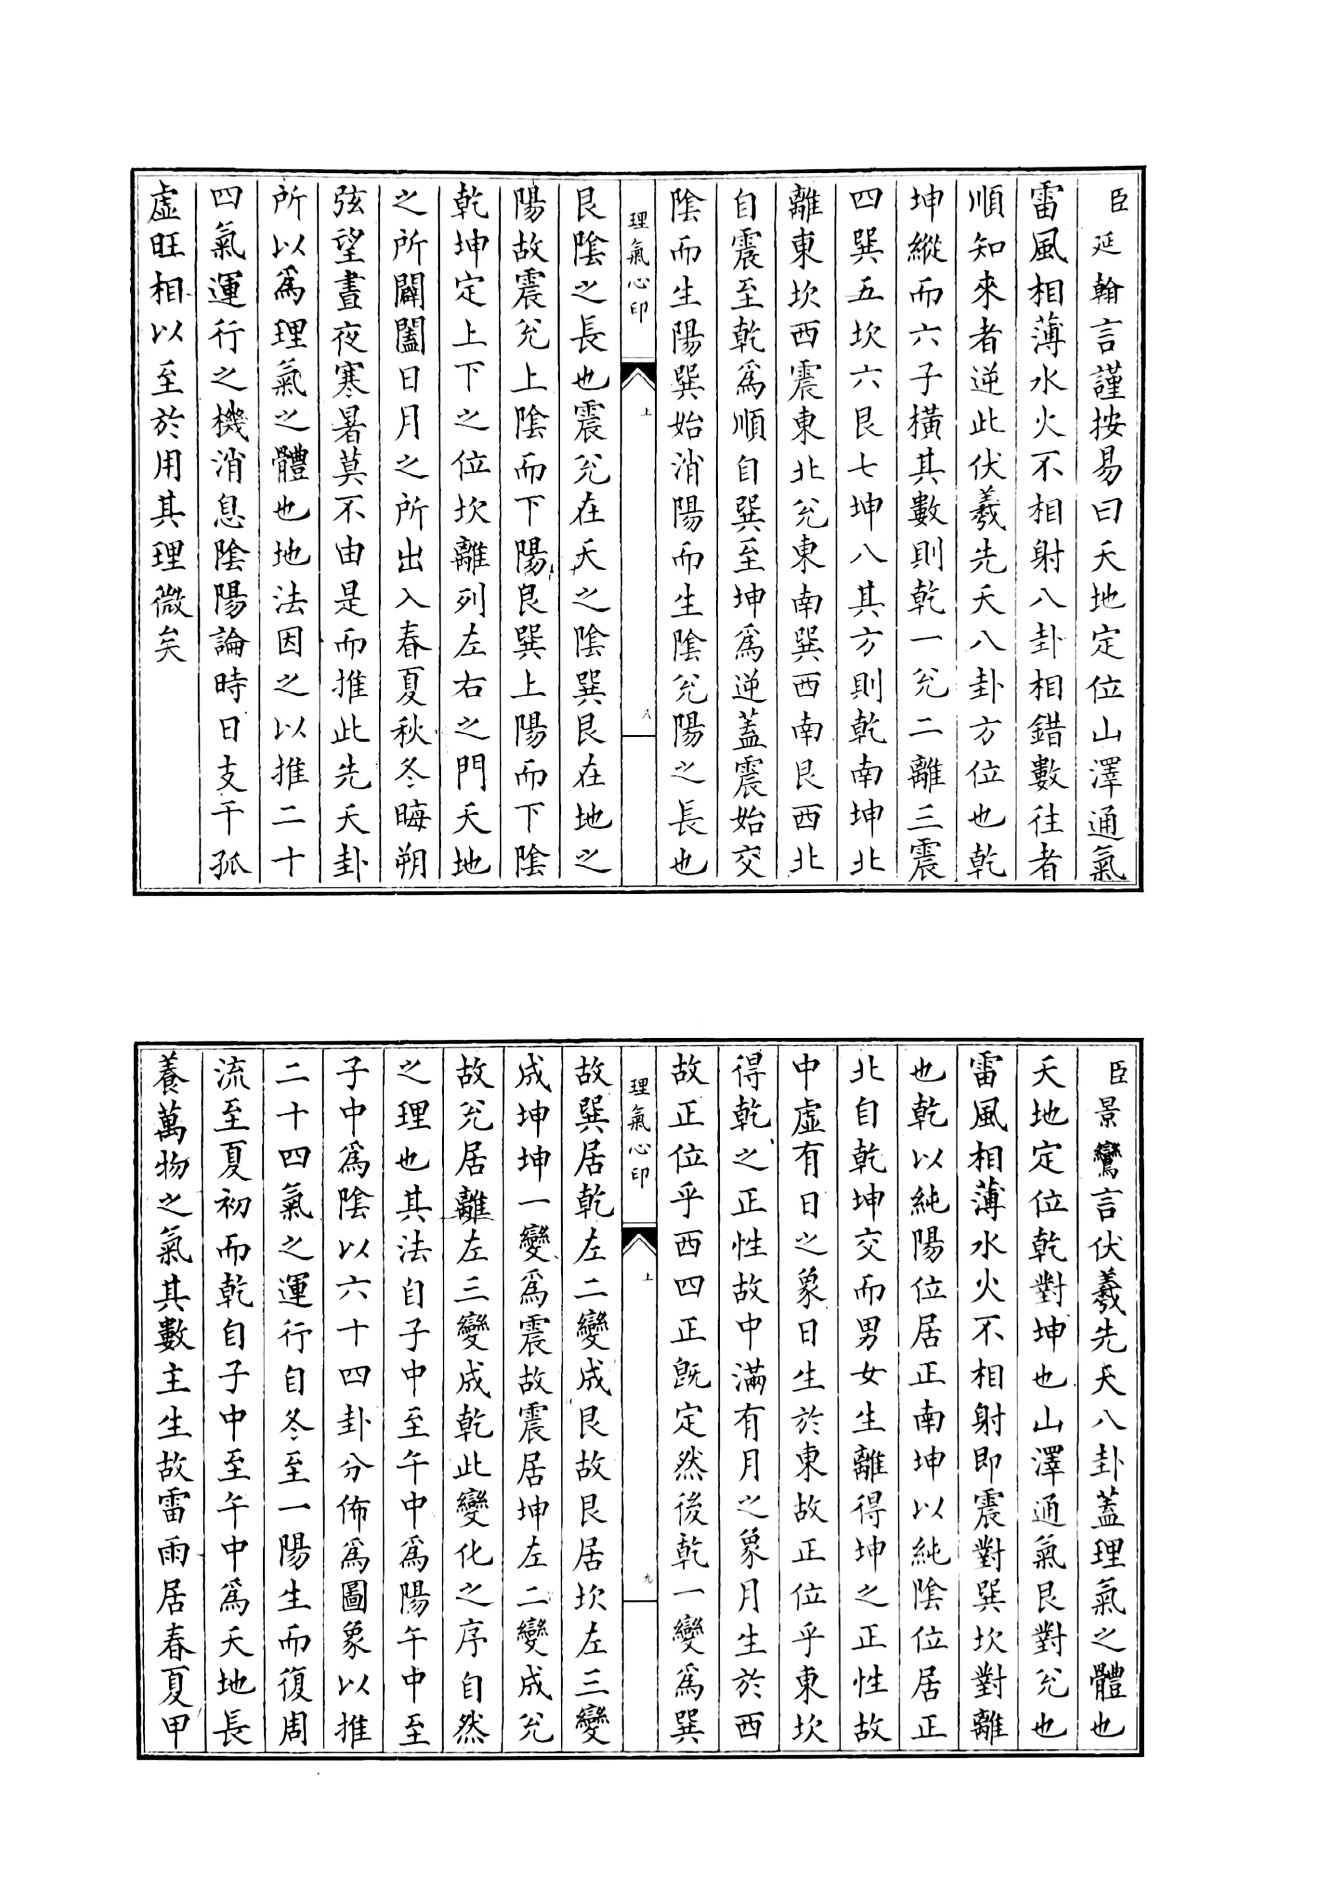 臣延翰言謹按易曰天地定位山澤通氣
雷風相薄水火不相射八卦相錯數往者
順知來者逆此伏羲先天八卦方位也乾
坤縱而六子橫其數則乾一兊二離三震
四巽五坎六艮七坤八其方則乾南坤北
離東坎西震東北兊東南巽西南艮西北
自震至乾爲順自巽至坤爲逆蓋震始交
陰而生陽巽始消陽而生陰兊陽之長也
理氣心印
上
八
艮陰之長也震兊在天之陰巽艮在地之
陽故震兊上陰而下陽艮巽上陽而下陰
乾坤定上下之位坎離列左右之門天地
之所闢闔日月之所出入春夏秋冬晦朔
弦望晝夜寒暑莫不由是而推此先天卦
所以爲理氣之體也地法因之以推二十
四氣運行之機消息陰陽論時日支干孤
虛旺相以至於用其理微矣
臣景鸞言伏羲先天八卦蓋理氣之體也
天地定位乾對坤也山澤通氣艮對兊也
雷風相薄水火不相射即震對巽坎對離
也乾以純陽位居正南坤以純陰位居正
北自乾坤交而男女生離得坤之正性故
中虛有日之象日生於東故正位乎東坎
得乾之正性故中滿有月之象月生於西
故正位乎西四正旣定然後乾一變爲巽
理氣心印
上
九
故巽居乾左二變成艮故艮居坎左三變
成坤坤一變爲震故震居坤左二變成兊
故兊居離左三變成乾此變化之序自然
之理也其法自子中至午中爲陽午中至
子中爲陰以六十四卦分佈爲圖象以推
二十四氣之運行自冬至一陽生而復周
流至夏初而乾自子中至午中爲天地長
養萬物之氣其數主生故雷雨居春夏甲